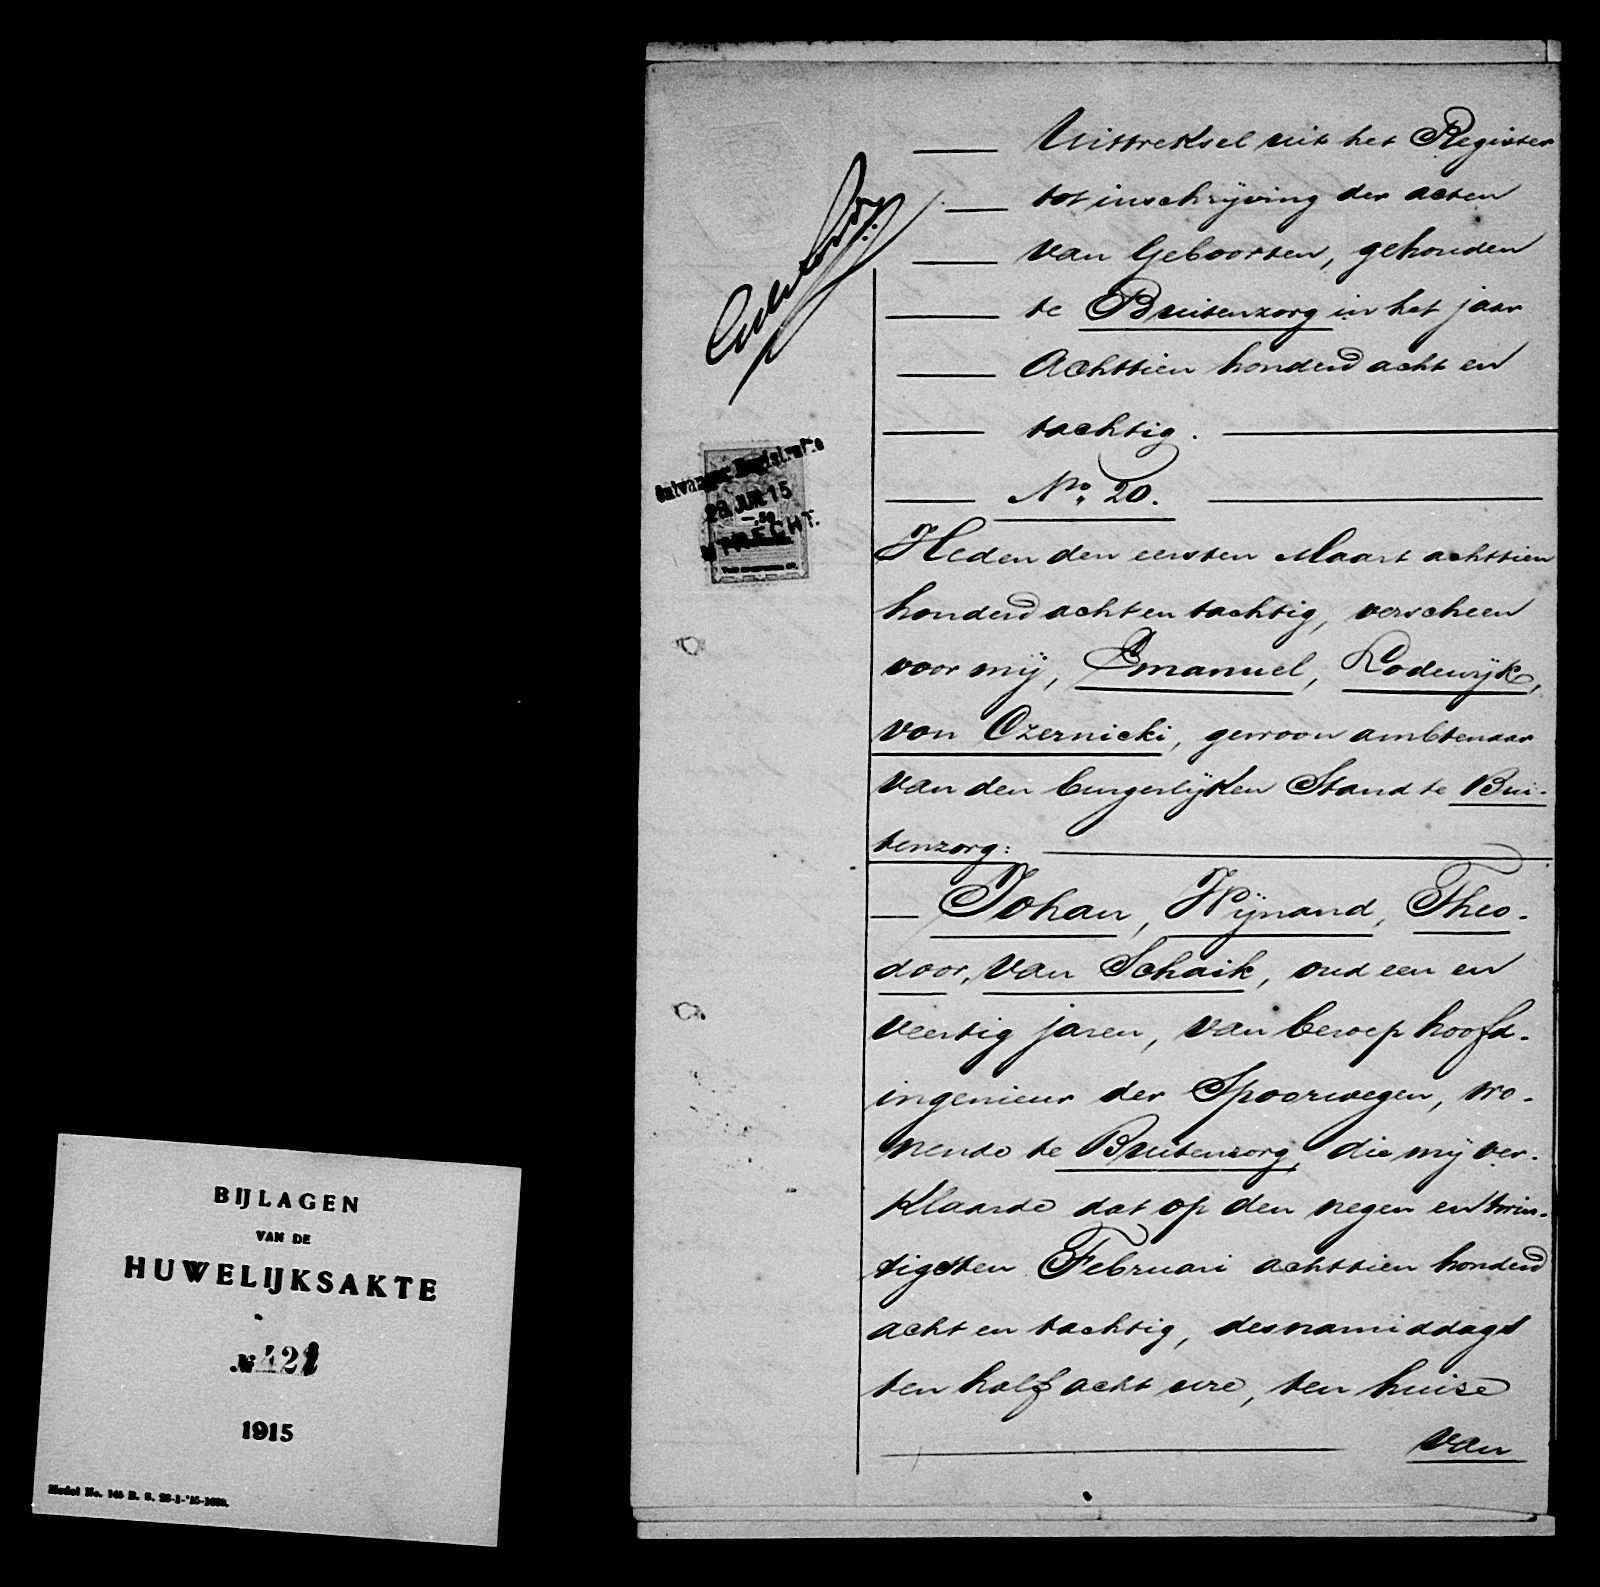 Uittreksel uit het Register
tot inschrijving der acten
van Geboorten, gehouden
te Buitenzorg in het jaar
Achttien honderd acht en
tachtig.
No. 20.
Heden den eersten Maart achttien
honderd acht en tachtig, verscheen
voor mij, Emanuel, Lodewijk,
von Czernicki, gewoon ambtenaar
van den burgerlijken Stand te Bui-
tenzorg:
Johan, Wijnand, Theo-
door, van Schaik, oud een en
veertig jaren, van beroep hoofd-
ingenieur der Spoorwegen, wo-
nende te Buitenzorg, die mij ver-
klaarde dat op den negen en twin-
tigsten Februari achttien honderd
acht en tachtig, des namiddags
ten half acht ure, ten huize
van
Ontvanger Registratie
29 JUN 15
UTRECHT.
BIJLAGEN
VAN DE
HUWELIJKSAKTE
No 421
1915
Model No. 144 B. S. 28-1-'15-1600.